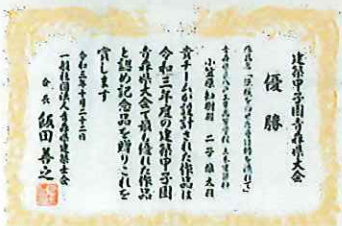 建築甲子園青森県大会
優勝
小笠原
二子
貴チームの設計された作品は
令和三年度の建築甲子園
青森県大会で最も優れた作品
と認め記念品を贈りこれを
賞します
令和三年十月二十二日
一般社団法人青森県建築士会
会長 飯田善之